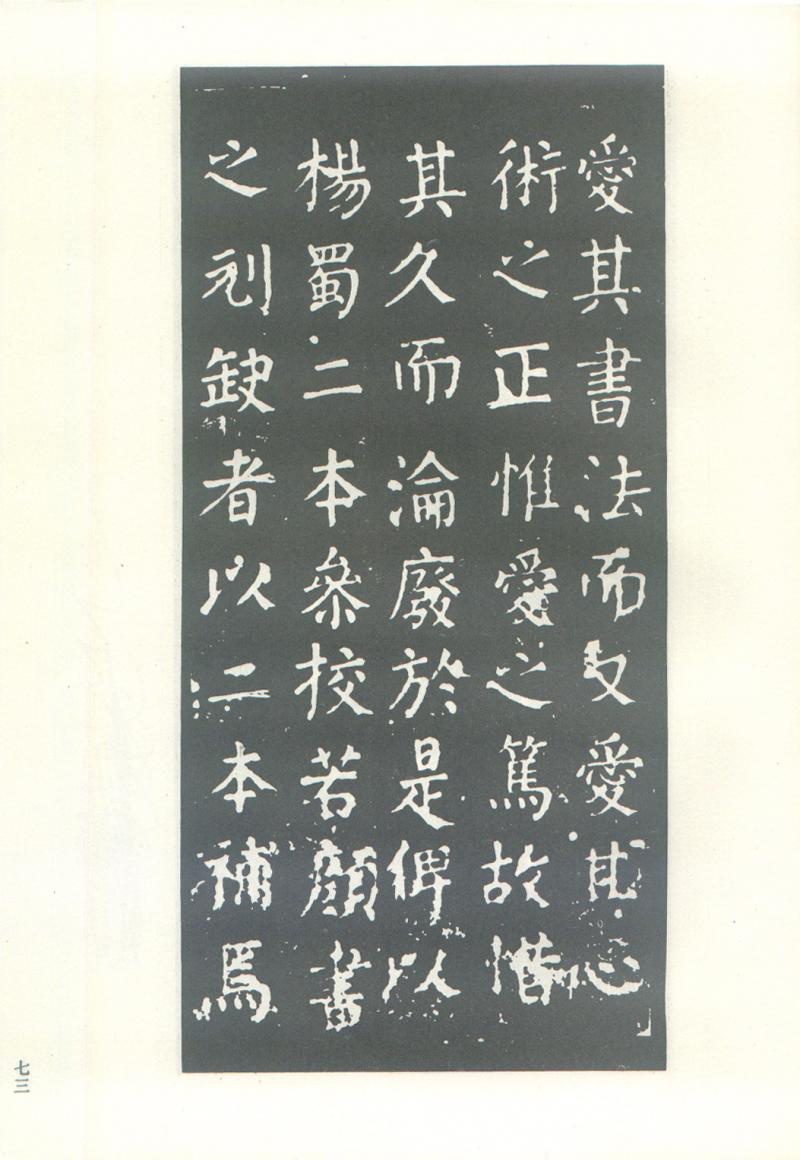 愛其書法而又愛其心
術之正惟愛之篤故惜
其久而淪廢於是俾以
楊蜀二本叅校若顔書
之刓缺者以二本補焉
七三